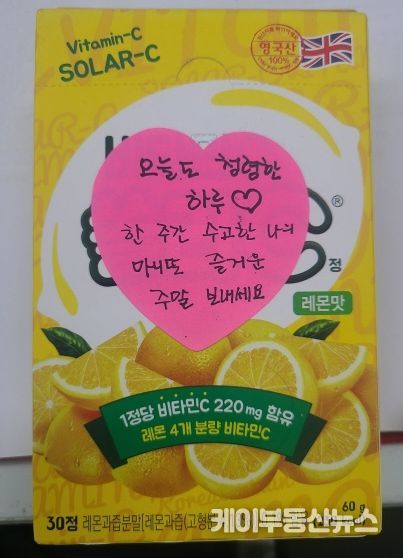 Vitamin-C
SOLAR-C
영국산
100%
오늘도 청렴한
하루♡
한 주간 수고한 나의
마니또 즐거운
주말 보내세요
®
정
레몬맛
1정당 비타민C 220 mg 함유
레몬 4개 분량 비타민C
60 g
30정 레몬과즙분말[레몬과즙(고형분
케이부동산뉴스